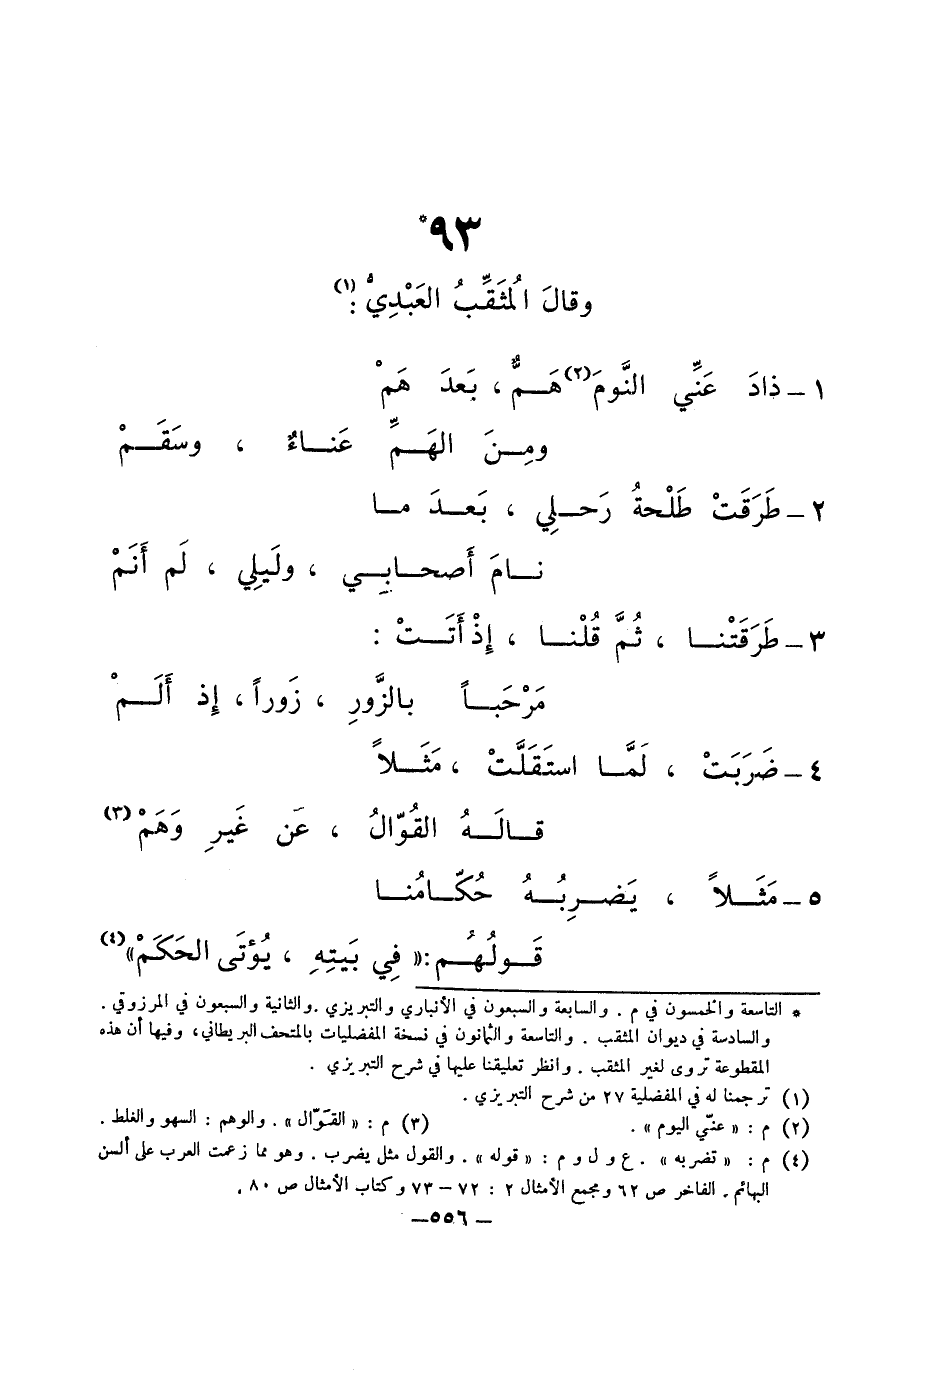 ٩٣*
وقالَ المُثَقِّبُ العَبْدِيُّ(١):
١ – ذادَ عَنِّي النَّومَ(٢) هَمٌّ ، بَعدَ هَمْ
ومِنَ الهَمِّ عَناءٌ ، وسَقَمْ
٢ – طَرَقَتْ طَلْحةُ رَحلِي ، بَعدَ ما
نامَ أصحابِي ، ولَيلِي ، لَم أَنَمْ
٣ – طَرَقَتْنا ، ثُمَّ قُلْنا ، إِذْ أَتَتْ :
مَرْحَباً بالزَّورِ ، زَوراً ، إِذ أَلَمْ
٤ – ضَرَبَتْ ، لَمَّا استَقَلَّتْ ، مَثَلاً
قالَهُ القُوّالُ ، عَن غَيرِ وَهَمْ(٣)
٥ – مَثَلاً ، يَضرِبُهُ حُكّامُنا
قَولُهُم : « فِي بَيتِهِ ، يُؤتَى الحَكَمْ »(٤)
* التاسعة والخمسون في م . والسابعة والسبعون في الأنباري والتبريزي . والثانية والسبعون في المرزوقي .
والسادسة في ديوان المثقب . والتاسعة والثمانون في نسخة المفضليات بالمتحف البريطاني ، وفيها أن هذه
المقطوعة تروى لغير المثقب . وانظر تعليقنا عليها في شرح التبريزي .
(١) ترجمنا له في المفضلية ٢٧ من شرح التبريزي .
(٢) م : « عنّي اليوم » . (٣) م : « القَوّال » . والوهم : السهو والغلط .
(٤) م : « تضربه » . ع و ل و م : « قوله » . والقول مثل يضرب . وهو مما زعمت العرب على ألسن
البهائم . الفاخر ص ٦٢ ومجمع الأمثال ٢ : ٧٢ – ٧٣ وكتاب الأمثال ص ٨٠ .
– ٥٥٦ –